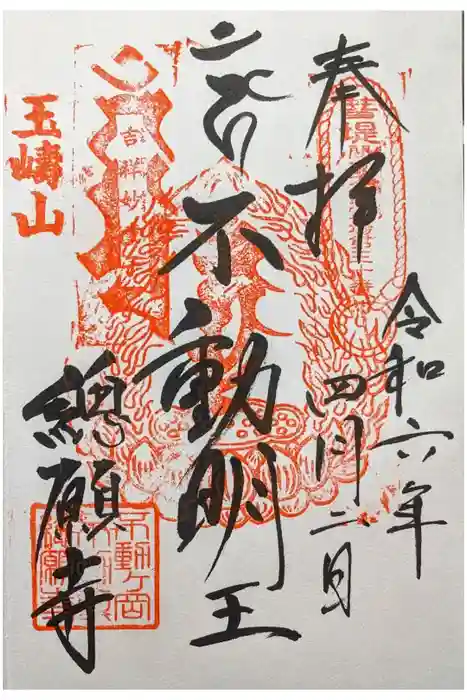 奉拝
令和六年
四月二日
不動明王
總願寺
玉嶹山
吉祥
不動ヶ岡